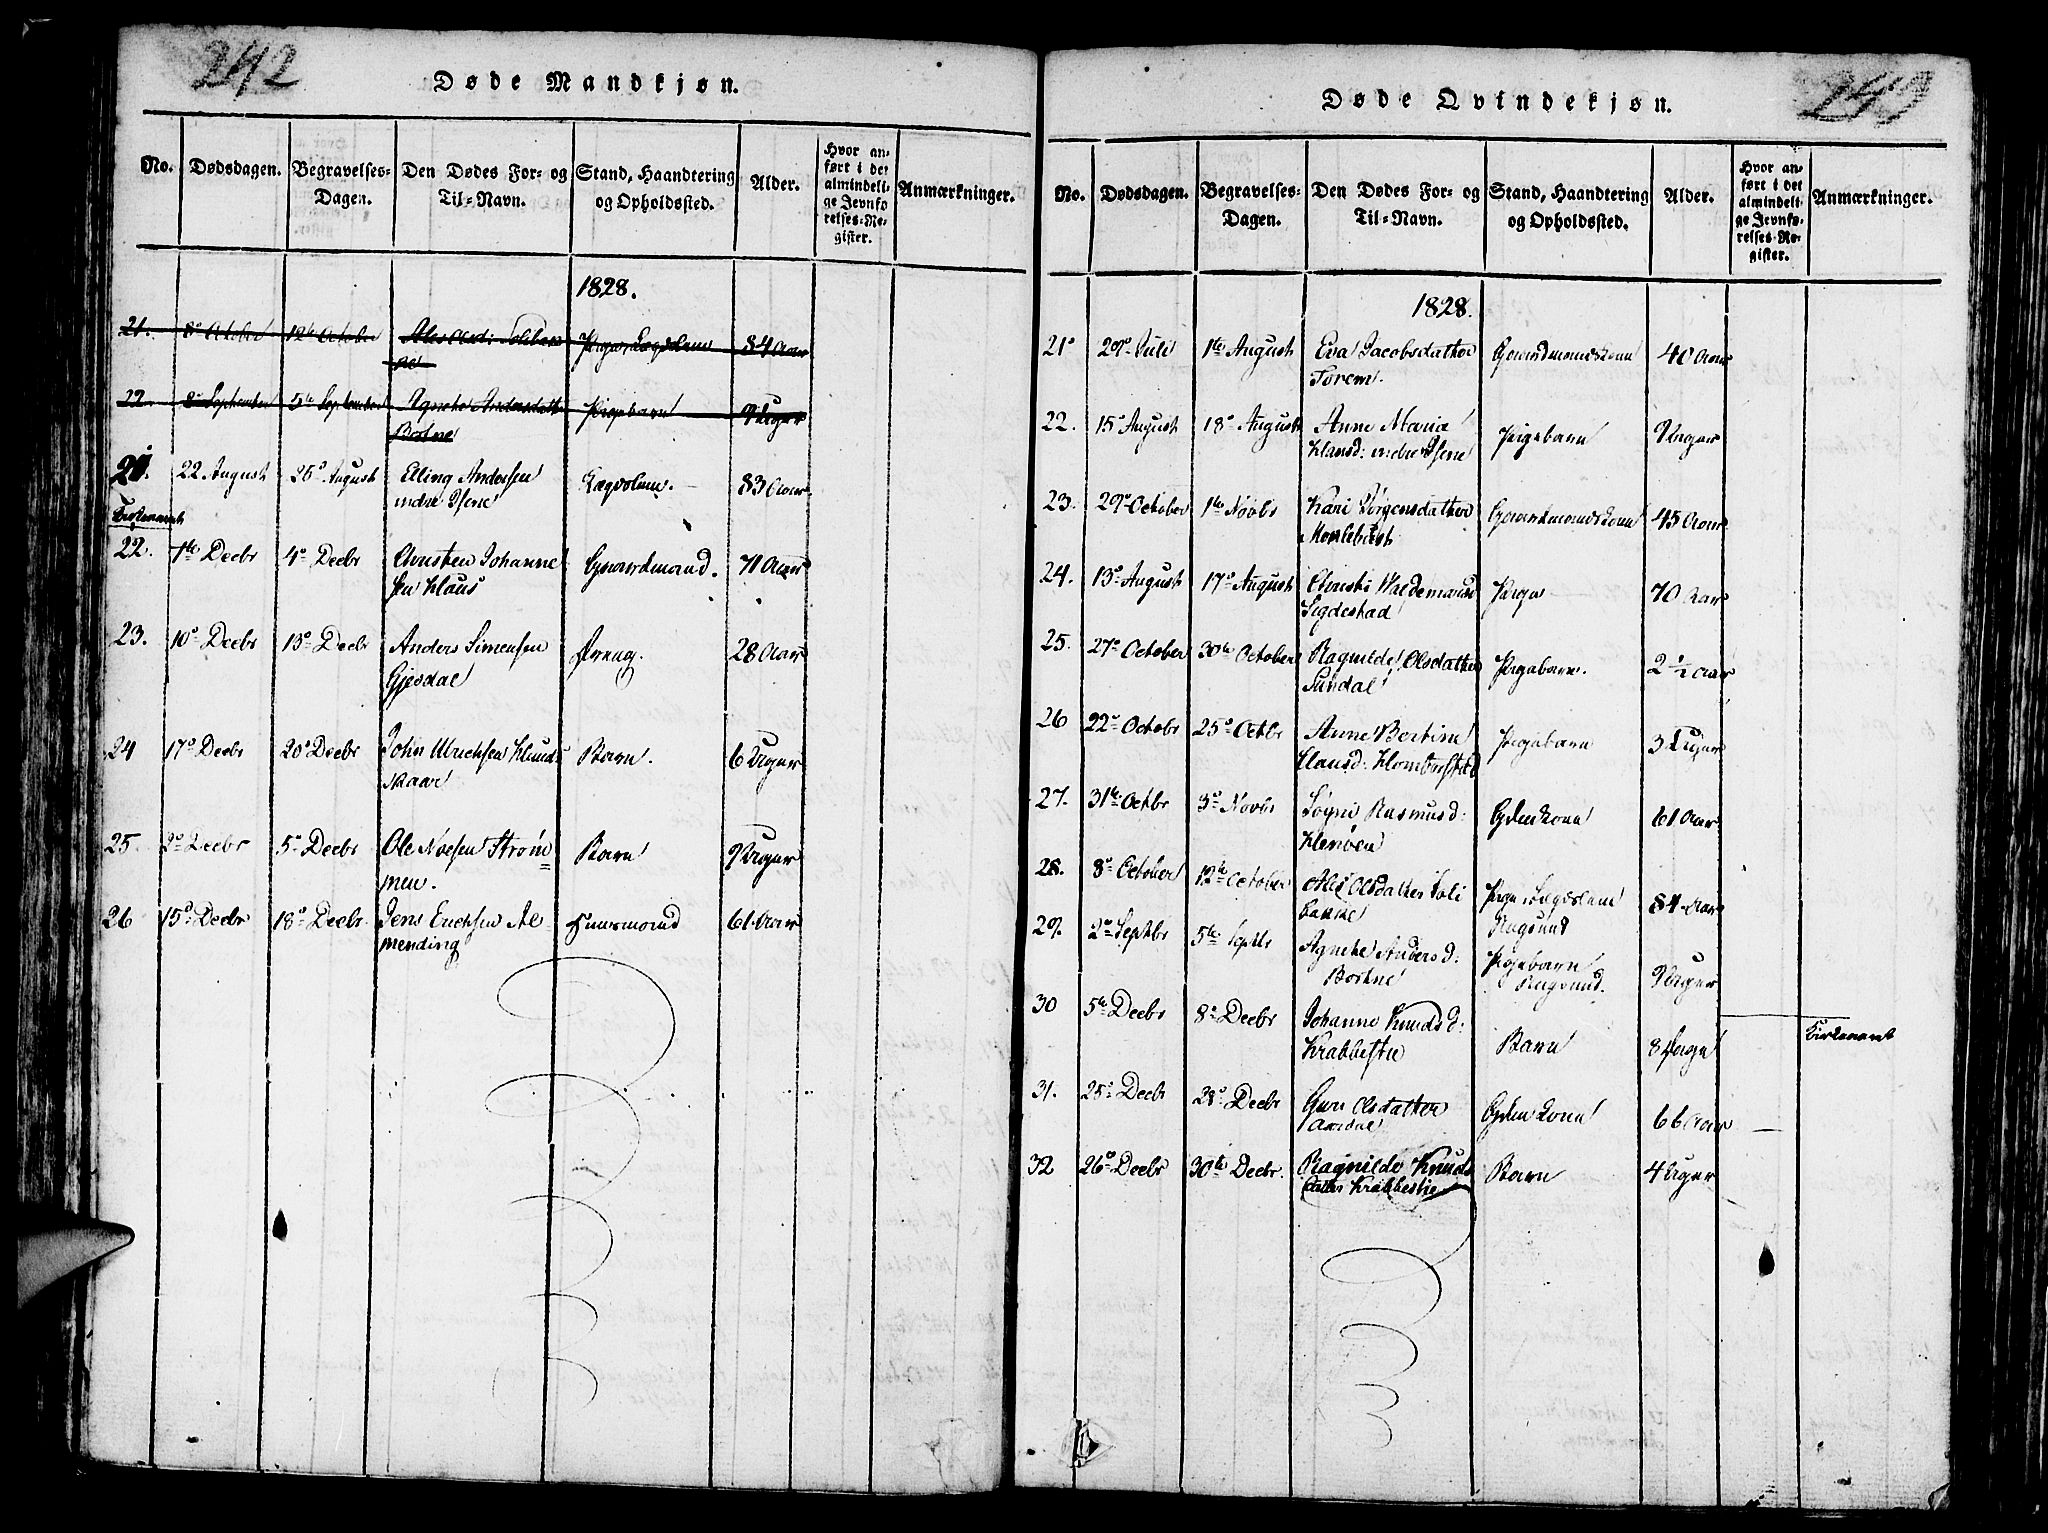 242
Døde Mandkjøn.
No. Dødsdagen. Begravelses-Dagen. Den Dødes For- og Til-Navn. Stand, Haandtering og Opholdssted. Alder. Hvor anført i det almindelige Jevnførelses-Register. Anmærkninger.
1828.
21. 8de October 12te October Ales Olsd: Solibakke Pige, Lægdslem 84 Aar
22. September 5te September Agnethe Andersdatt Bortne Pigebarn 9 Uger
21. 22 August 25de August Elling Andersen indre Isene Lægdslem. 83 Aar
22. 1te Decbr 4de Decbr Christen Johannesen Klaus Gaardmand. 71 Aar
23. 10de Decbr 13de Decbr Anders Simensen Gjesdal Dreng. 28 Aar
24 17de Decbr 20de Decbr John Ulrichsen Klundskaar Barn. 6 Uger
25. 2de Decbr 5te Decbr Ole Noesen Strømmen. Barn 9 Uger
26 15de Decbr 18de Decbr Jens Erichsen Almending Huusmand 61 Aar
Døde Qvindekjøn.
No. Dødsdagen. Begravelses-Dagen. Den Dødes For- og Til-Navn. Stand, Haandtering og Opholdssted. Alder. Hvor anført i det almindelige Jevnførelses-Register. Anmærkninger.
1828.
21 29de Juli 1te August Eva Jacobsdatter Torem. Gaardmands Kone 40 Aar
22. 15de August 18de August Anne Maria Klausd: indre Isene Pigebarn 9 Uger
23. 29de October 1te Novbr Kari Jørgensdatter Gaardmands Kone 45 Aar
24. 13de August 17de August Christi Waldemarsd Sigdestad Pige 70 Aar
25. 27de October 30te October Ragnilde Olsdatter Sundal Pigebarn. 2 1/2 Aar
26 22de Octobr 25de Octbr Anne Bertine Clausd: Pigebarn 3 Uger
27. 31te Octbr 3de Novbr Søgni Rasmusd: Klenøen Kone 61 Aar
28. 8de October 12te October Ales Olsdatter Solibakke Pige Lægdslem Rugsund 84 Aar
29. 2de Septbr 5te Septbr Agnethe Andersd: Bortne Pigebarn Rugsund. 9 Uger
30 5te Decbr 8de Decbr Johanne Knudsd: Krabbestie Barn 8 Dage
31. 25de Decbr 28de Decbr Guri Olsdatter Kone 66 Aar
32 26de Decbr 30te Decbr. Ragnilde Knudsdatter Krabbestie Barn 4 Uger